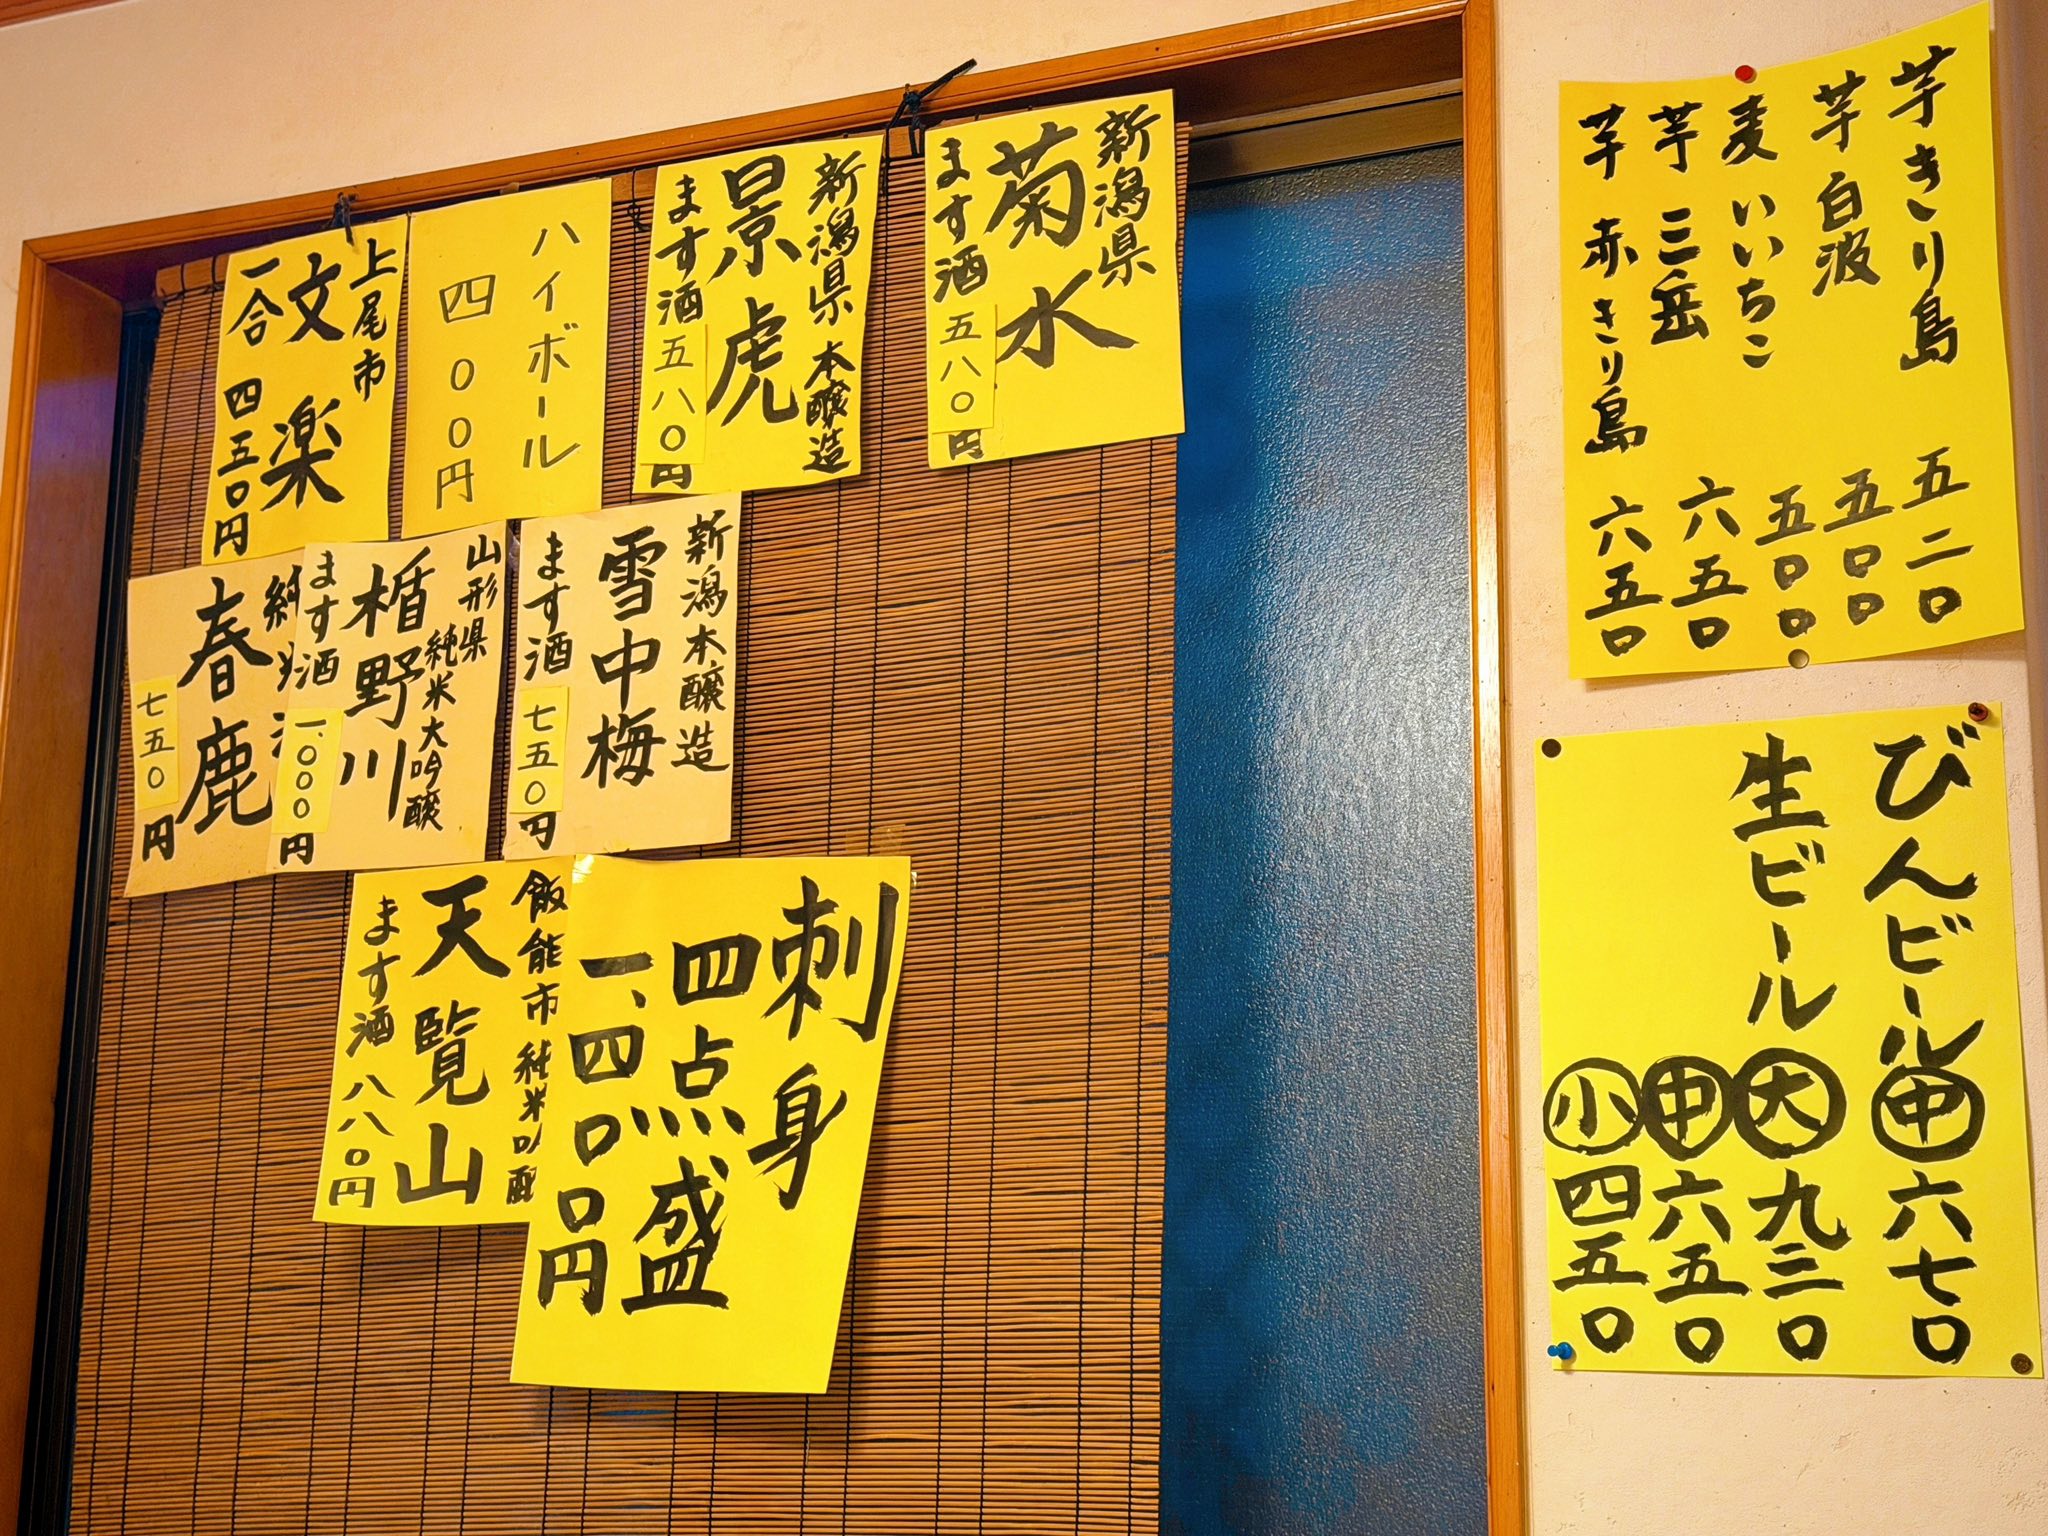 芋 きり島 五二〇
芋 白波 五〇〇
麦 いいちこ 五〇〇
芋 三岳 六五〇
芋 赤きり島 六五〇
びんビール 中 六七〇
生ビール 大 九三〇
中 六五〇
小 四五〇
新潟県
菊水
ます酒 五八〇円
新潟県 本醸造
景虎
ます酒 五八〇円
ハイボール
四〇〇円
上尾市
文楽
一合 四五〇円
新潟本醸造
雪中梅
ます酒 七五〇円
山形県
純米大吟醸
楯野川
ます酒 一、〇〇〇円
純米
春鹿
七五〇円
刺身
四点盛
一、四〇〇円
飯能市 純米吟醸
天覧山
ます酒 八八〇円